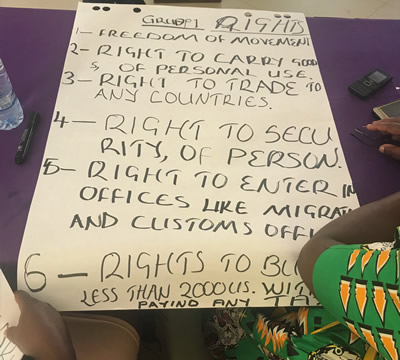 GROUP 1 RIGHTS
1- FREEDOM OF MOVEMENT
2- RIGHT TO CARRY GOOD
S, OF PERSONAL USE.
3- RIGHT TO TRADE TO
ANY COUNTRIES.
4- RIGHT TO SECU
RITY, OF PERSON.
5- RIGHT TO ENTER IN
OFFICES LIKE MIGRAT
AND CUSTOMS OFFI
6- RIGHTS TO
LESS THAN 2000 US.
PAYING ANY